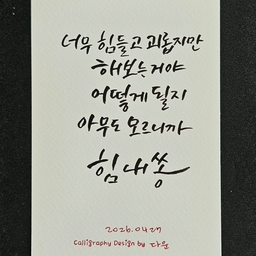 너무 힘들고 괴롭지만
해보는거야
어떻게 될지
아무도 모르니까
힘내쏭
2026.04.27
Calligraphy Design by 다운